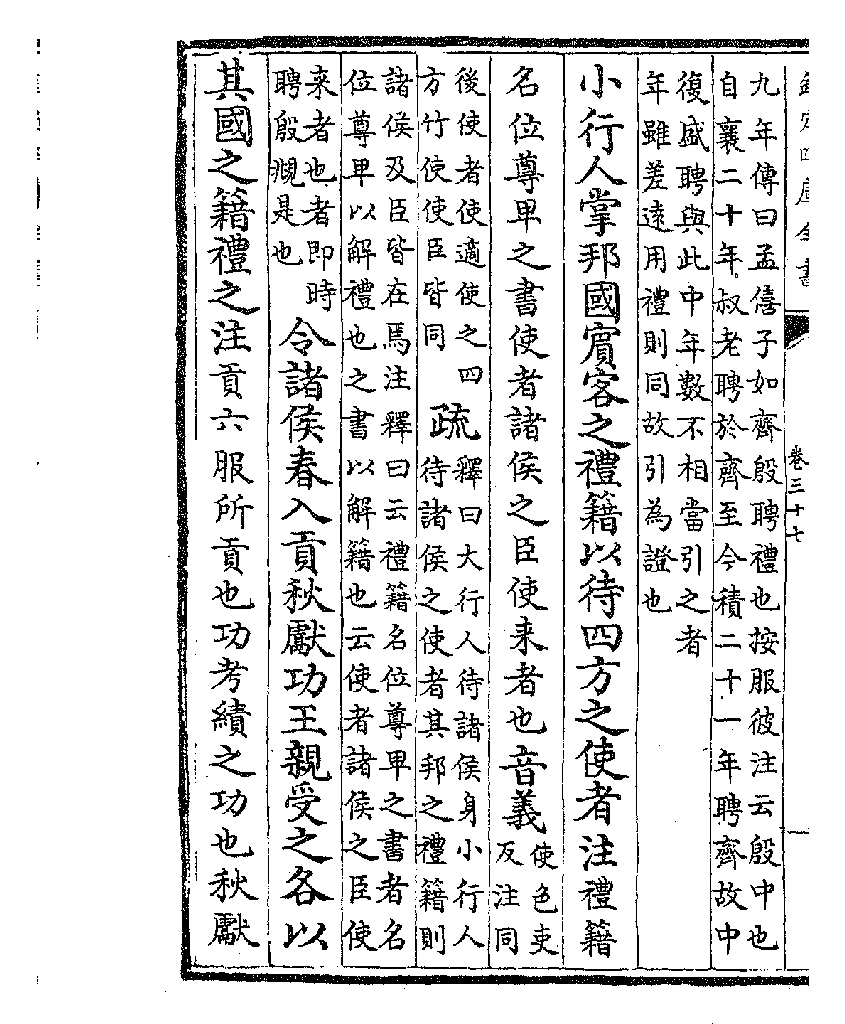 欽定四庫全書
卷三十七
九年傳曰孟僖子如齊殷聘禮也按服彼注云殷中也
自襄二十年叔老聘於齊至今積二十一年聘齊故中
復盛聘與此中年數不相當引之者
年雖差遠用禮則同故引為證也
小行人掌邦國賔客之禮籍以待四方之使者注禮籍
名位尊卑之書使者諸侯之臣使来者也音義
使色吏
反注同
後使者使適使之四
方竹使使臣皆同
疏
釋曰大行人待諸侯身小行人
待諸侯之使者其邦之禮籍則
諸侯及臣皆在焉注釋曰云禮籍名位尊卑之書者名
位尊卑以解禮也之書以解籍也云使者諸侯之臣使
来者也者即時
聘殷覜是也
令諸侯春入貢秋獻功王親受之各以
其國之籍禮之注貢六服所貢也功考績之功也秋獻